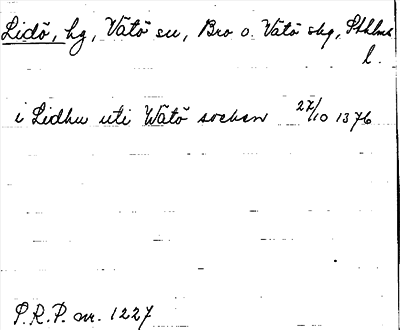 Lidö, hg, Vätö sn, Bro o. Vätö skg, Sthlms
l.
i Lidhu uti Wätö sochen 27/10 1376
P.R.P. nr. 1227